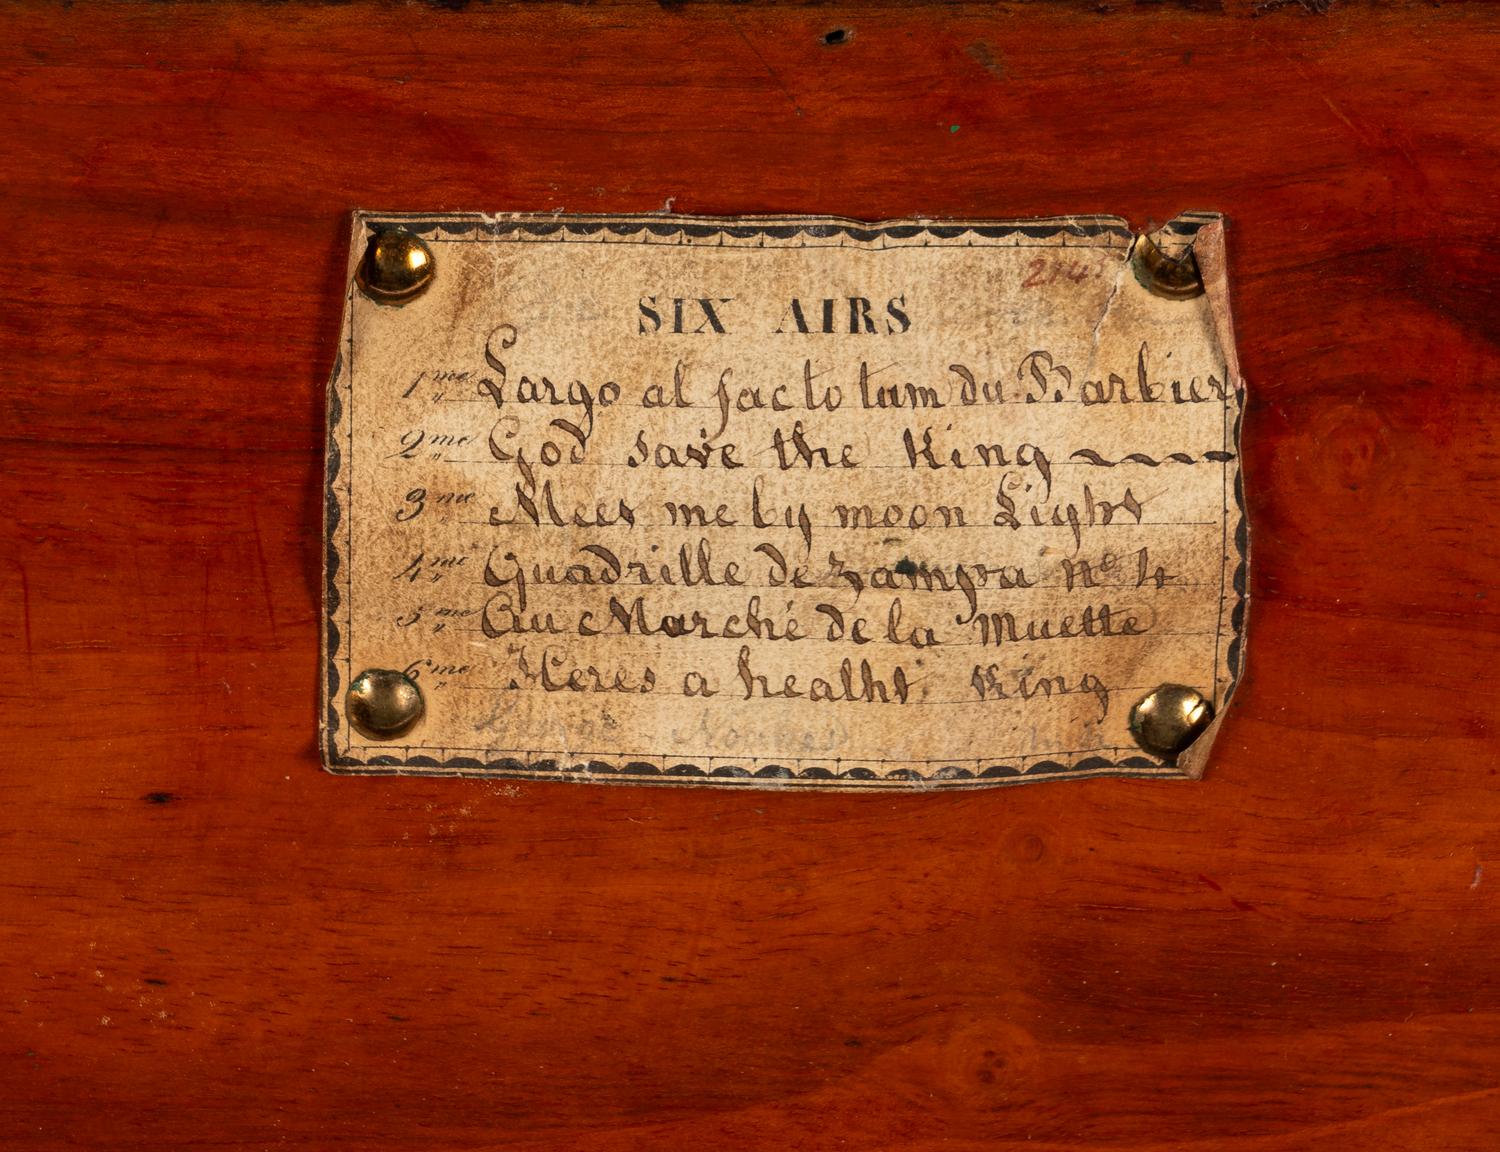 SIX AIRS
1me Largo al factotum du Barbier
2me God save the King
3me Meet me by moon Light
4me Quadrille de Zampa no 4
5me Au Marché de la Muette
6me Heres a healht King